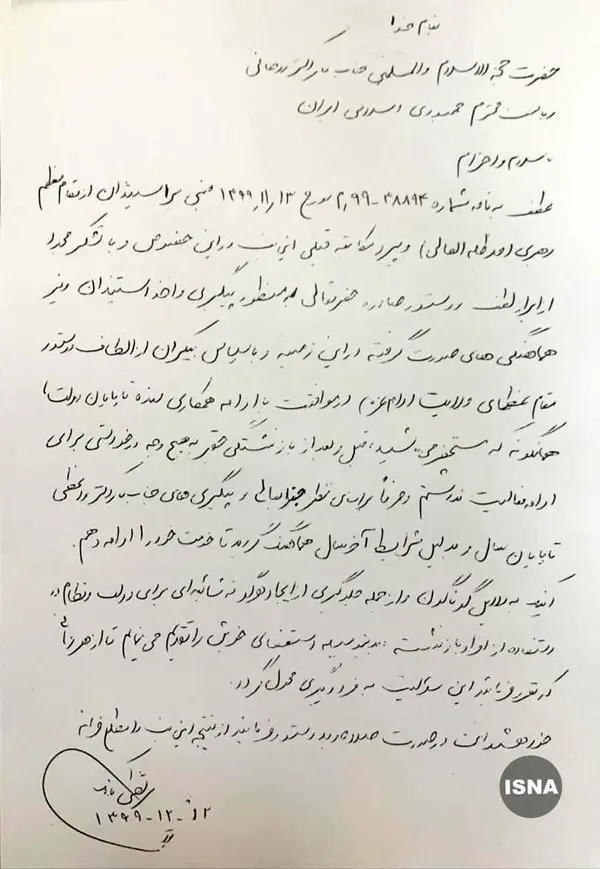 بنام خدا
حضرت حجة الاسلام والمسلمین جناب آقای دکتر روحانی
ریاست محترم جمهوری اسلامی ایران
با سلام و احترام
عطف به نامه شماره ۳۸۸۹۴-م۹۹ مورخ ۱۳۹۹,۱۱,۱۳ مبنی بر استیذان از مقام معظم
رهبری (مد ظله العالی) و پیرو مکاتبه قبلی اینجانب در این خصوص و با تشکر مجدد
از ابراز لطف و دستور صادره حضرتعالی به منظور پیگیری و اخذ استیذان و نیز
هماهنگی های صورت گرفته در این زمینه و با سپاس بیکران از الطاف و دستور
مقام عظمای ولایت در موافقت با ادامه همکاری بنده تا پایان دولت،
همانگونه که مستحضر می باشید، قبل و بعد از بازنشستگی حقیر به هیچ وجه درخواستی برای
ادامه فعالیت نداشتم و صرفاً براساس نظر جنابعالی و پیگیری های جناب آقای دکتر واعظی
تا پایان سال و بدلیل شرایط آخر سال هماهنگ گردید تا خدمت خود را ادامه دهم.
اینک به دلایل گوناگون و از جمله جلوگیری از ایجاد هرگونه شائبه ای برای دولت و نظام در
استفاده از افراد بازنشسته، بدینوسیله استعفای خویش را تقدیم می نمایم تا از هر زمانی
که مقرر فرمائید این مسئولیت به فرد دیگری محول گردد.
خواهشمند است در صورت صلاحدید دستور فرمائید از نتیجه اینجانب را مطلع فرمایند
تقی
۱۳۹۹-۱۲-
ISNA